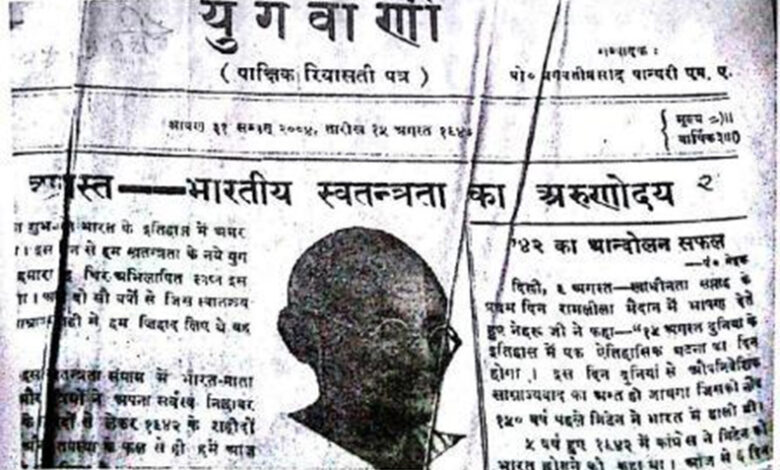 युगवाणी
( पाक्षिक रियासती पत्र )
सम्पादक :
प्रो० भगवतीप्रसाद पान्थरी एम. ए.
श्रावण ३१ सम्वत् २००४, तारीख १५ अगस्त १९४७
मूल्य
वार्षिक
अगस्त—भारतीय स्वतन्त्रता का अरुणोदय
२
भारत के इतिहास में अमर
। इस दिन से हम स्वतन्त्रता के नये युग
चिर अभिलाषित स्वप्न इस
दो सौ वर्षों से जिस स्वातन्त्र्य
में हम जिहाद लिए थे वह
स्वतन्त्रता संग्राम में भारत-माता
ने अपना सर्वस्व निछावर
से लेकर १९४२ के शहीदों
के फल से ही हमें आज
'४२ का आन्दोलन सफल
—पं० नेहरू
दिल्ली, ९ अगस्त—स्वाधीनता सप्ताह के
प्रथम दिन रामलीला मैदान में भाषण देते
हुए नेहरू जी ने कहा—"१५ अगस्त दुनिया के
इतिहास में एक ऐतिहासिक घटना का दिन
होगा । इस दिन दुनियां से औपनिवेशिक
साम्राज्यवाद का अन्त हो जायगा जिसकी नींव
१५० वर्ष पहले ब्रिटेन ने भारत में डाली थी।
५ वर्ष हुए १९४२ में कांग्रेस ने ब्रिटेन को
भारत छोड़ने को कहा था । आज से ६ दिन